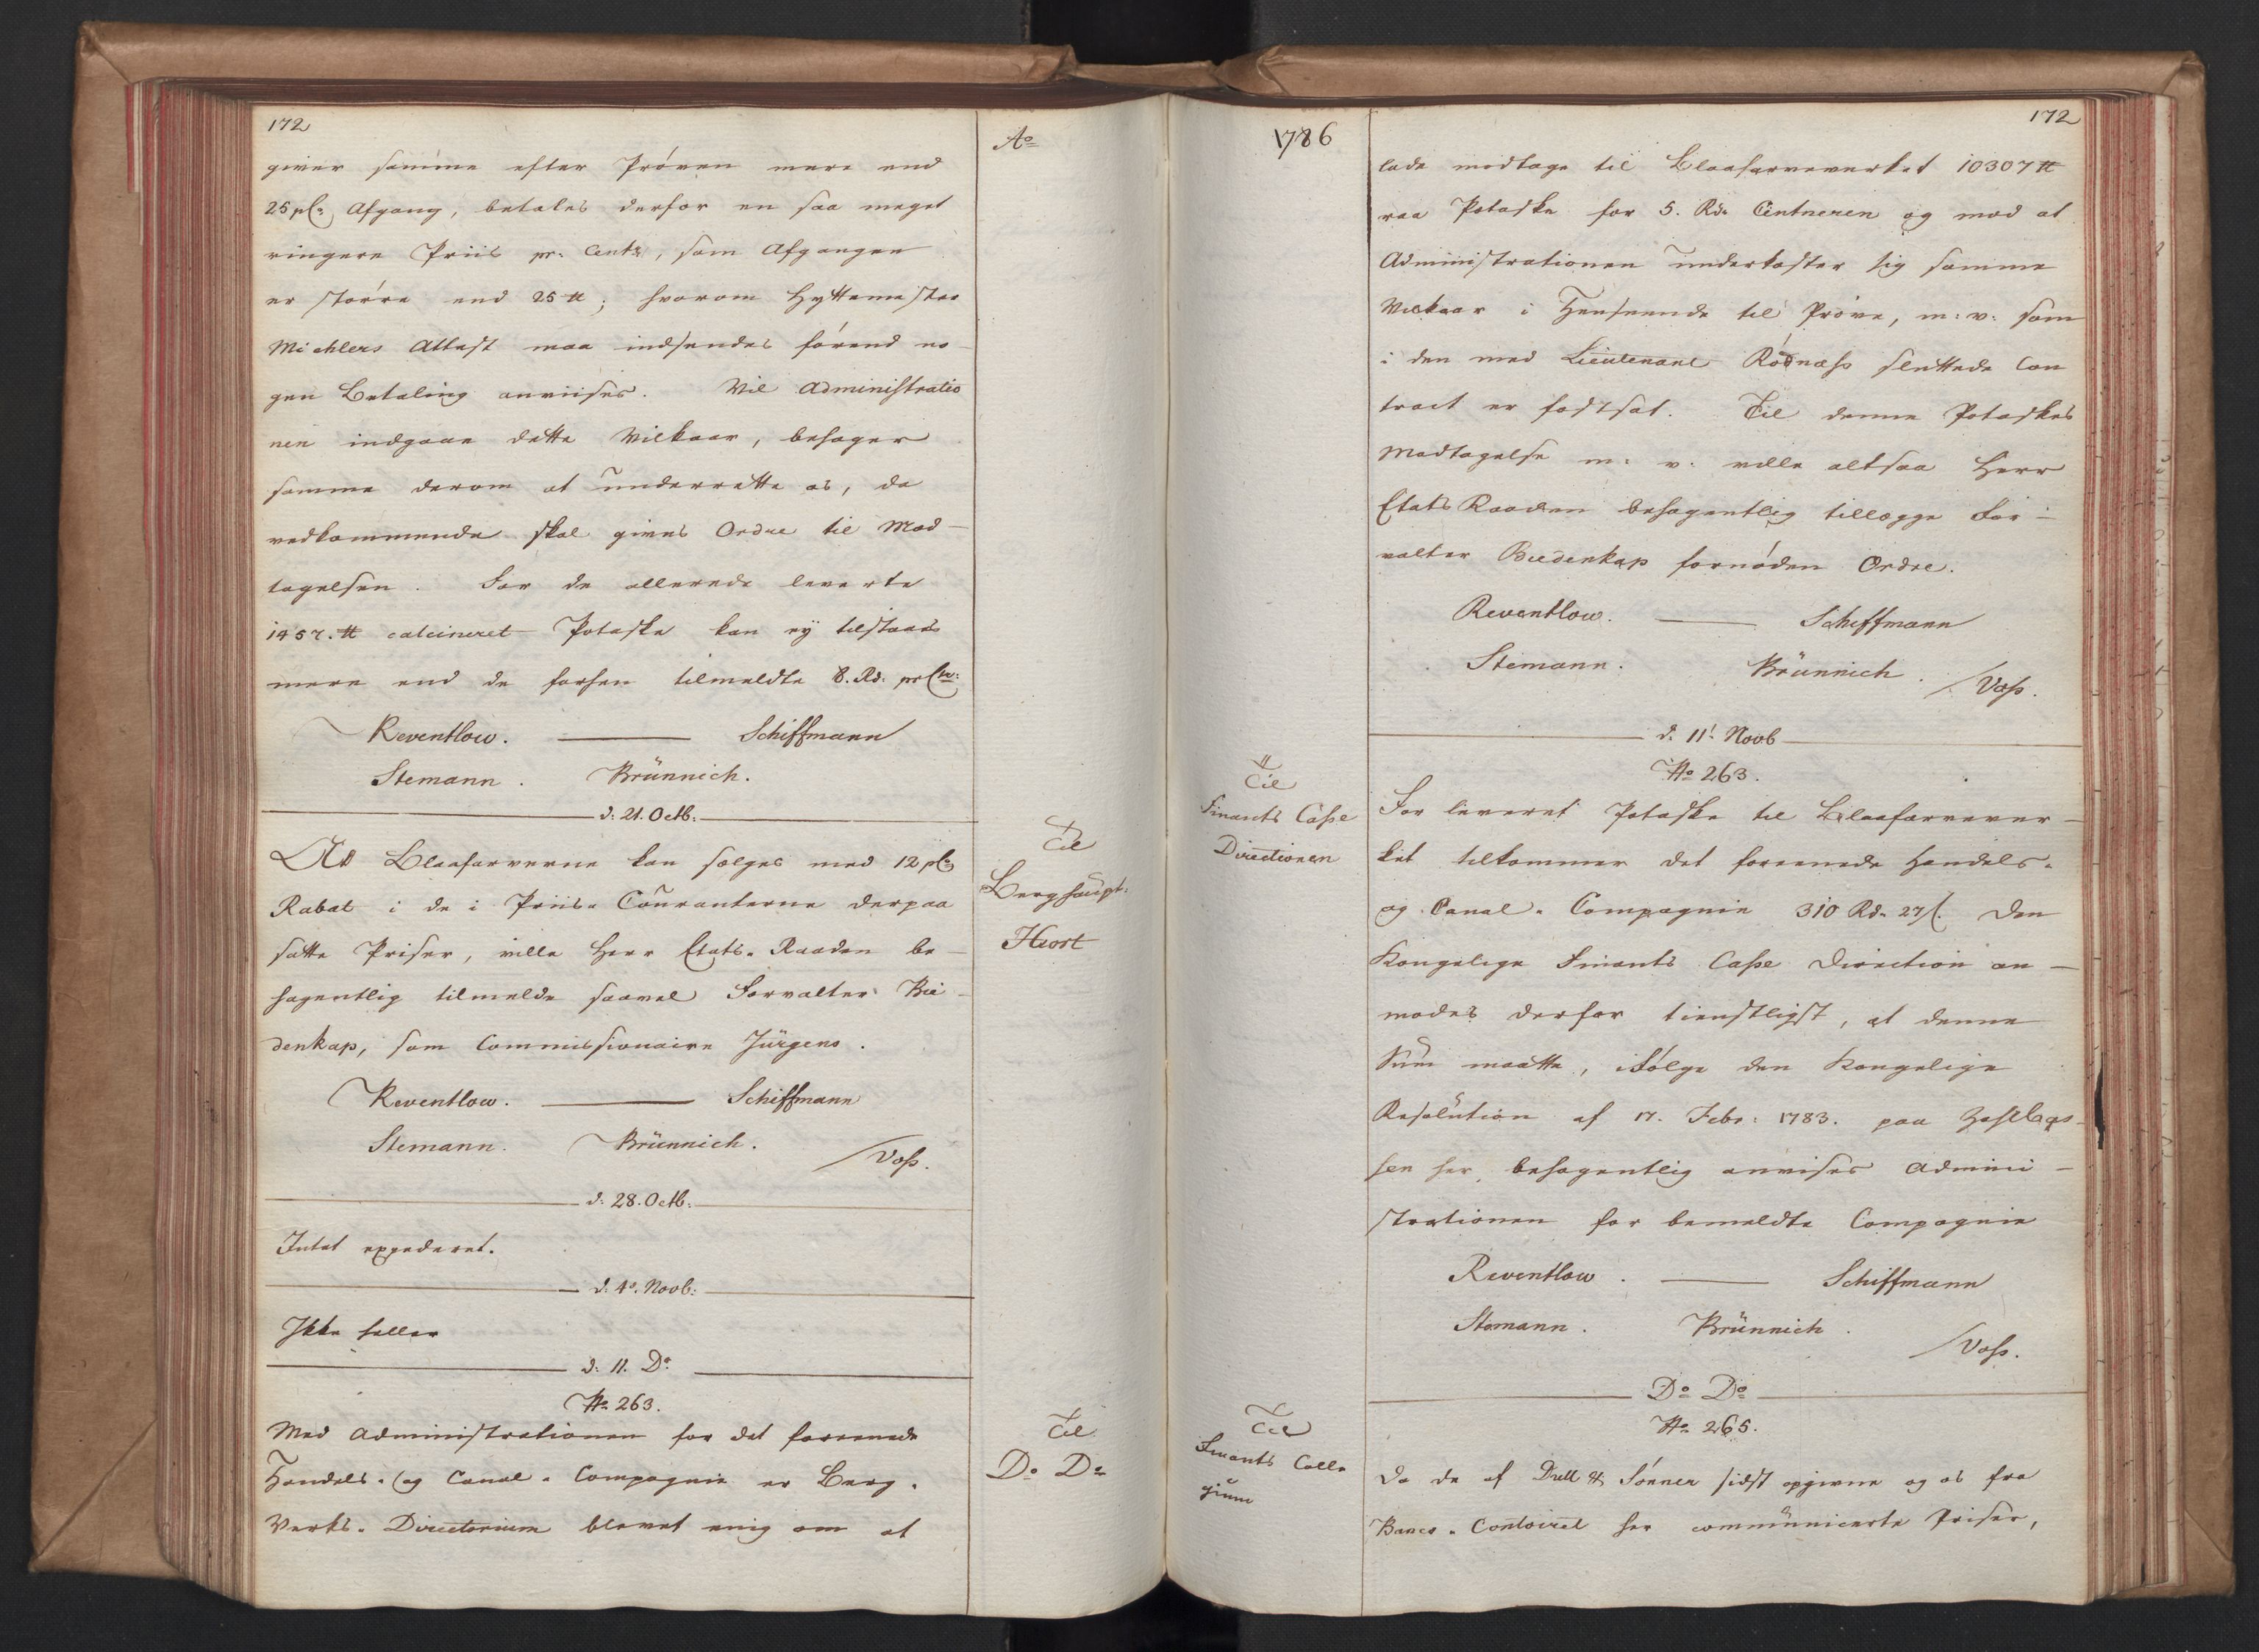 172
Ao
giver samme efter Prøven mere end
25 pC: Afgang, betales derfor en saa meget
ringere Priis pr: Centr, som Afgangen
er större end 25 ℔; hvorom Hyttemester
Michlers Attest maa indsendes förend no
gen Betaling anviises. Vil Administratio
nen indgaae dette Vilkaar, behager
samme derom at underrette os, da
vedkommende skal gives Ordre til Mod-
tagelsen. For de allerede leverte
1457. ℔ calcineret Potaske kan ey tilstaaes
mere end de forhen tilmeldte 8. Rd. pr Ctn:
Reventlow. — Schiffmann
Stemann. Brünnich.
d: 21. Octb:
Til
Berghaupt:
Hiort
At Blaafarverne kan sælges med 12 pC
Rabat i de i Priis-Couranterne derpaa
satte Priser, ville Herr Etats-Raaden be-
hagentlig tilmelde saavel Forvalter Bie-
denkap, som Commissionaire Jürgens.
Reventlow. — Schiffmann
Stemann. Brünnich.
Voss.
d: 28. Octb:
Intet expederet.
d. 4o. Novb:
Ikke heller
d: 11. Do
No 263.
Til
Do Do
Med Administrationen for det foreenede
Handels- og Canal-Compagnie er Berg-
Verks-Directorium blevet enig om at
1786
172
lade modtage til Blaafarveverket 10307 ℔
raa Potaske for 5. Rd. Centneren og mod at
Administrationen underkaster sig samme
Vilkaar i Henseende til Pröve, m: v: som
i den med Lieutenant Rödnæss sluttede Con
tract er fastsat. Til denne Potaskes
Modtagelse m: v: ville altsaa Herr
Etats Raaden behagentlig tillægge For-
valter Biedenkap fornöden Ordre.
Reventlow. — Schiffmann
Stemann. Brünnich.
Voss.
d. 11t Novb
No 263.
Til
Finants Casse
Directionen
For leveret Potaske til Blaafarvever-
ket tilkommer det foreenede Handels-
og Canal-Compagnie 310 Rd. 27 s. Den
Kongelige Finants Casse Direction an-
modes derfor tienstligst, at denne
Sum maatte, ifölge den Kongelige
Resolution af 17. Febr: 1783. paa Zahlkas-
sen her, behagentlig anvises Admini-
strationen for bemeldte Compagnie
Reventlow. — Schiffmann
Stemann. Brünnich.
Voss.
Do Do
No 265.
Til
Finants Colle
gium
Da de af Dull & Sönner sidst opgivne og os fra
Banco-Contoiret her communicerte Priser,